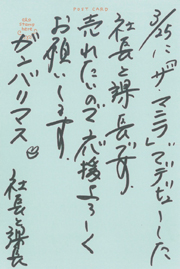 POST CARD
3/25に「ザ・マニラ」でデビューした
社長と課長です。
売れたいので応援よろしく
お願いします。
ガンバリマス
社長と課長